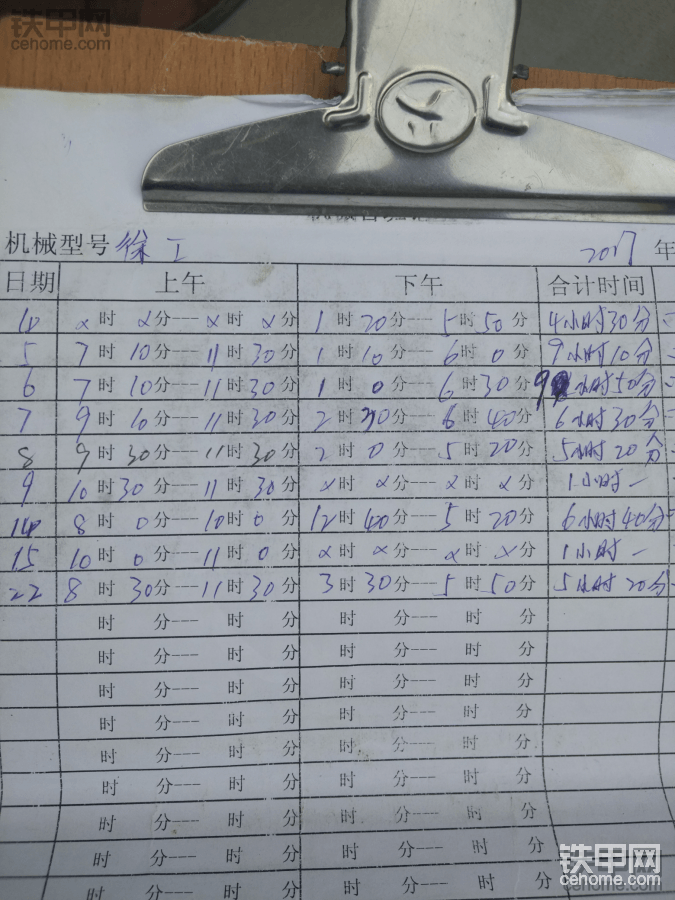 铁甲网
cehome.com
机械型号 徐工 2017 年
日期 上午 下午 合计时间
10 x时 x分---x时 x分 1时20分---5时50分 4小时30分
5 7时10分---11时30分 1时10分---6时0分 9小时10分
6 7时10分---11时30分 1时0分---6时30分 9小时50分
7 9时10分---11时30分 2时30分---6时40分 6小时30分
8 9时30分---11时30分 2时0分---5时20分 5小时20分
9 10时30分---11时30分 x时x分---x时x分 1小时-
14 8时0分---10时0分 12时40分---5时20分 6小时40分
15 10时0分---11时0分 x时x分---x时x分 1小时-
22 8时30分---11时30分 3时30分---5时50分 5小时20分
时 分---时 分 时 分---时 分
时 分---时 分 时 分---时 分
时 分---时 分 时 分---时 分
时 分---时 分 时 分---时 分
时 分---时 分 时 分---时 分
时 分---时 分 时 分---时 分
时 分---时 分 时 分---时 分
时 分---时 分 时 分---时 分
时 分---时 分 时 分---时 分
铁甲网
cehome.com